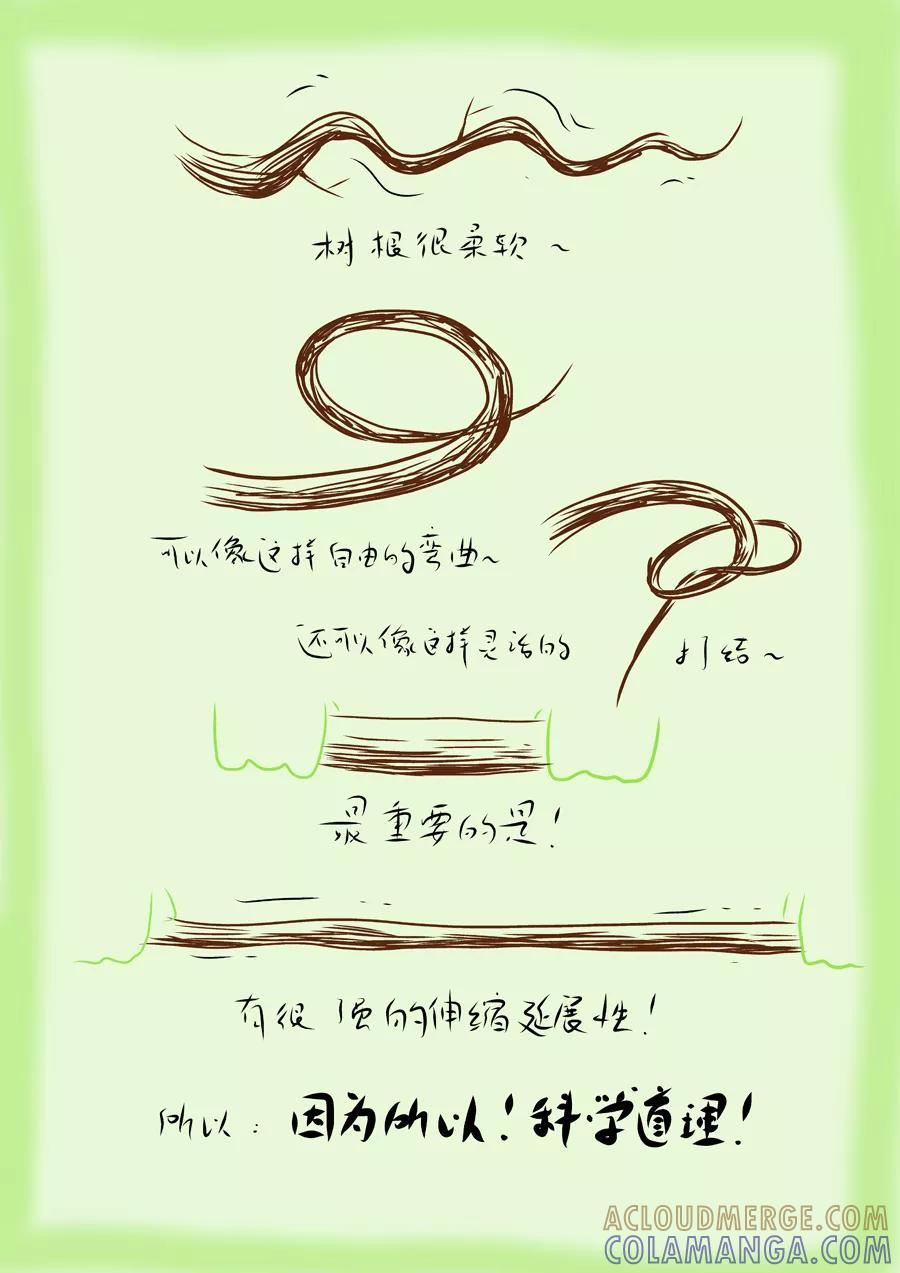 树根很柔软~
可以像这样自由的弯曲~
还可以像这样灵活的 打结~
最重要的是!
有很强的伸缩延展性!
所以:因为所以!科学道理!
ACLOUDMERGE.COM
COLAMANGA.COM